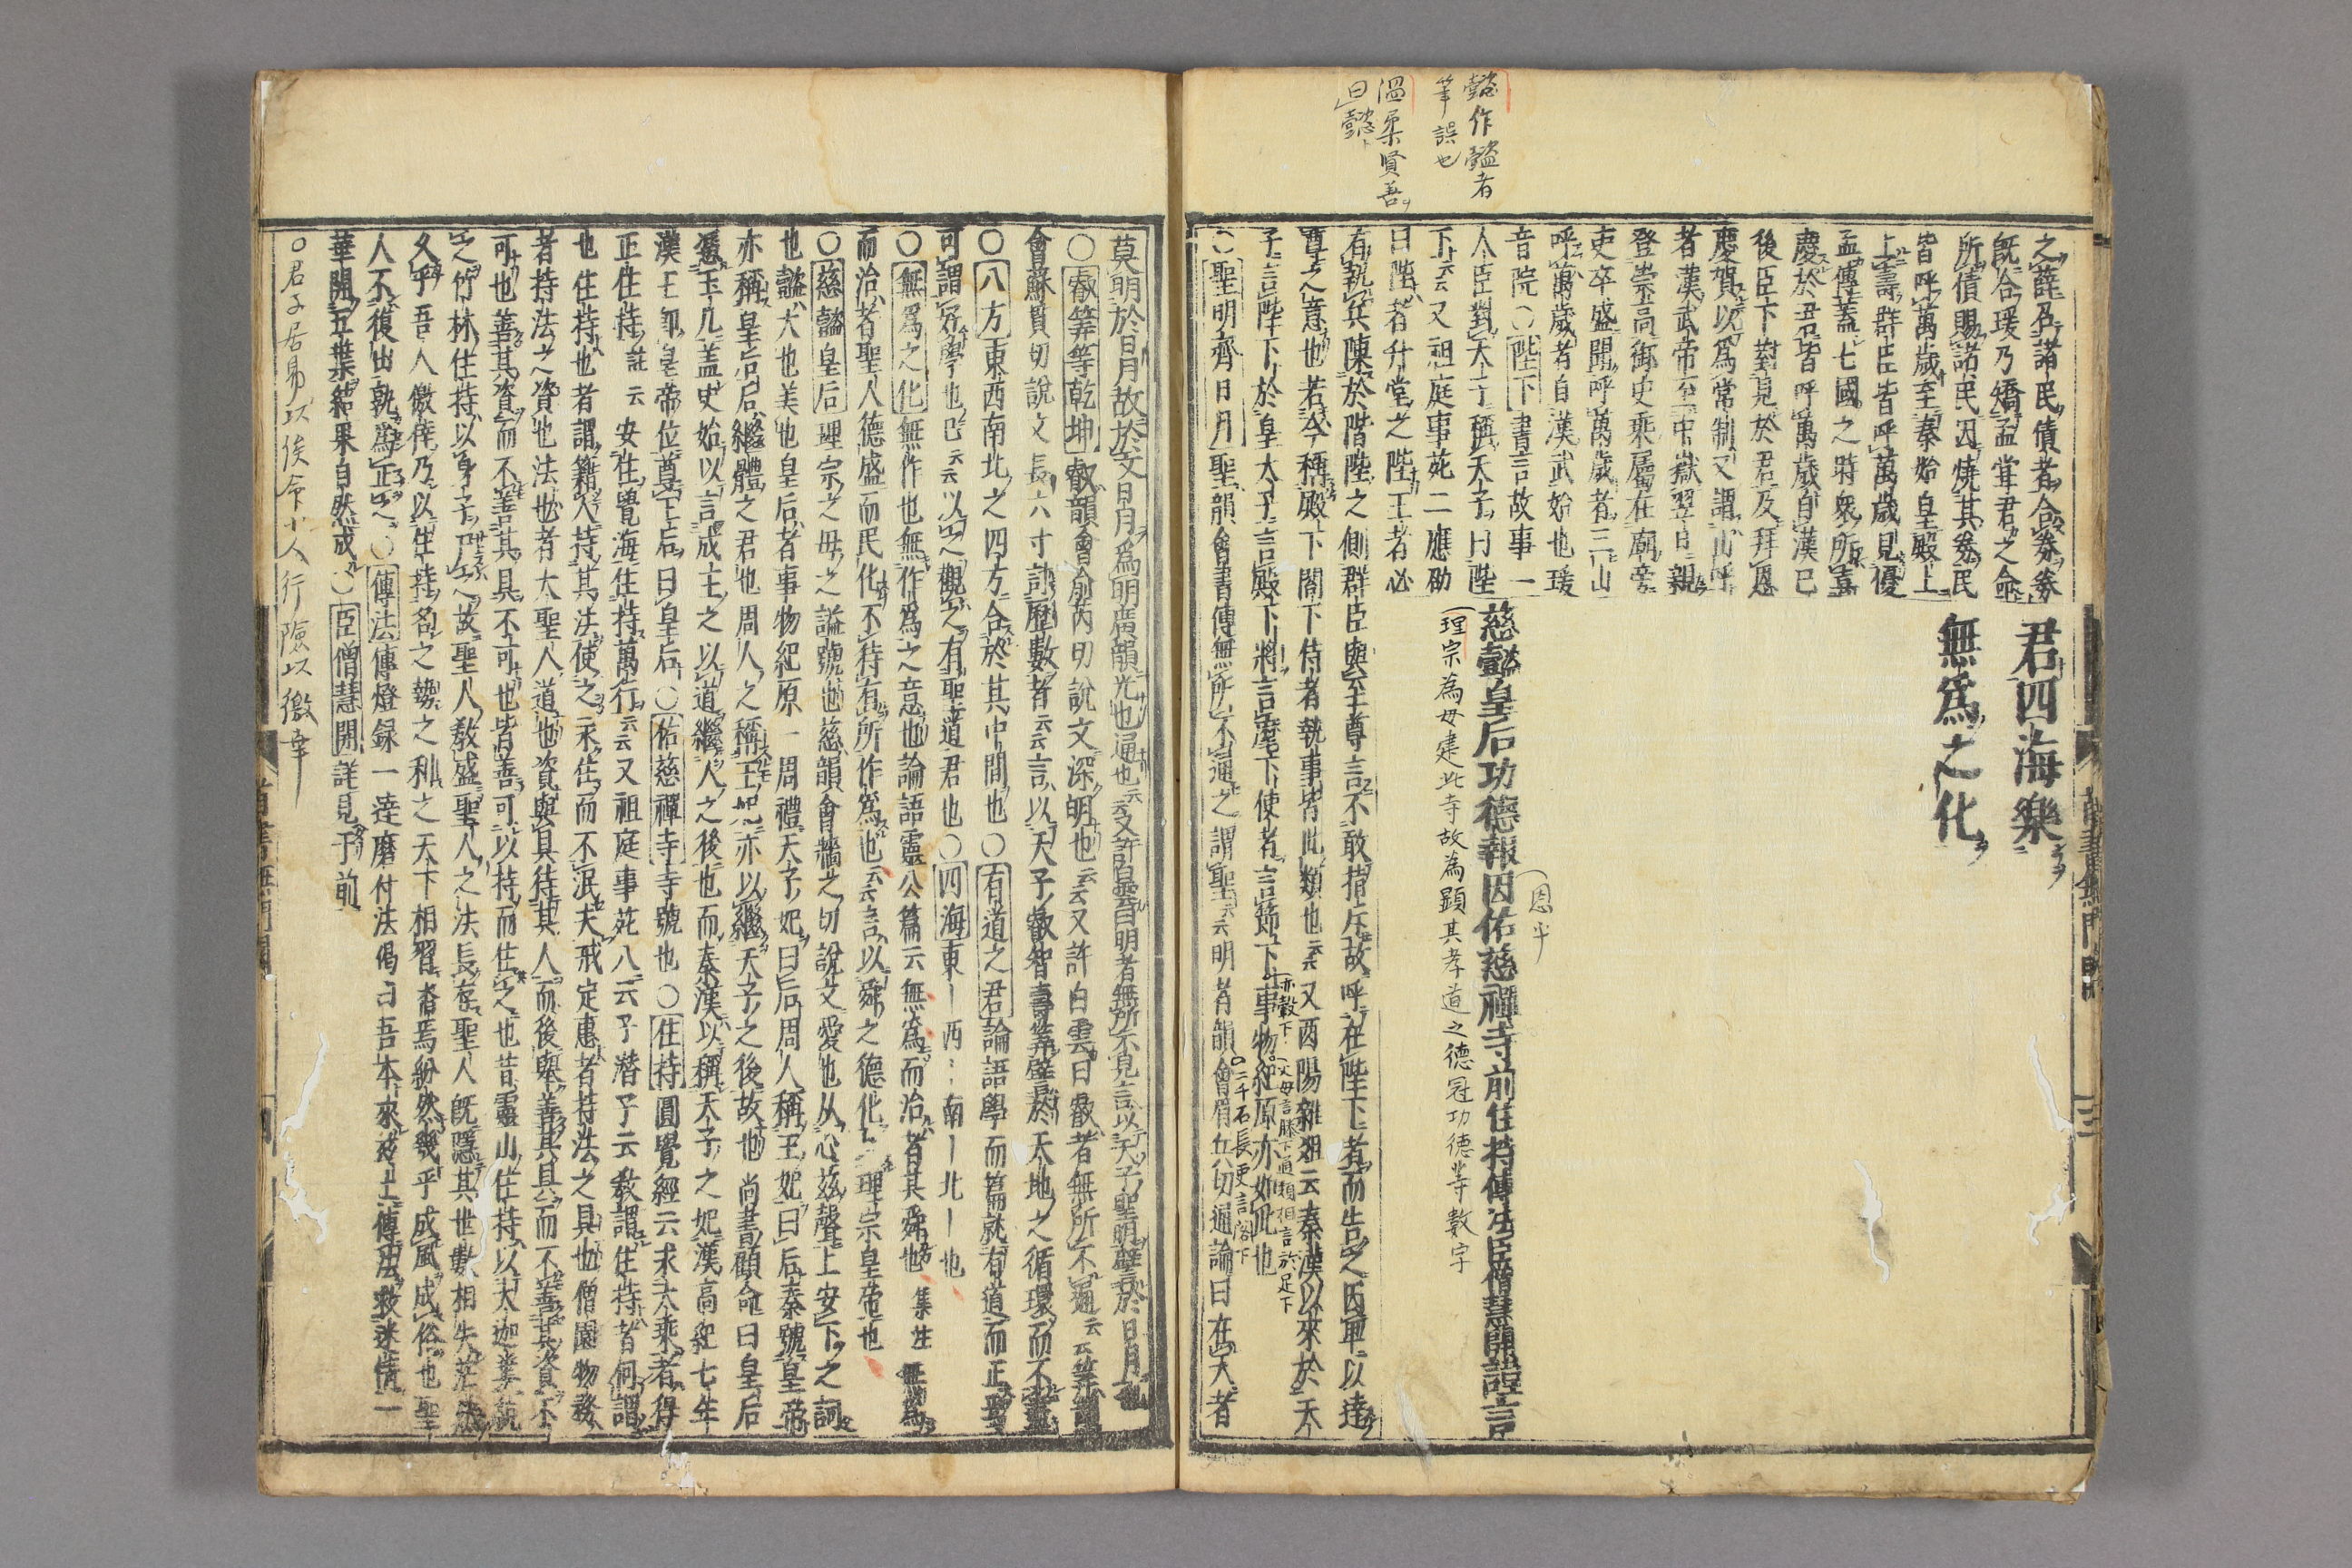 懿作懿者
筆誤也
溫柔賢善
曰懿
之薛召諸民債者合券券
既合瑗乃矯孟甞君之命
所債賜諸民因燒其券民
皆呼萬歲至秦始皇殿上
上壽群臣皆呼萬歲見優
孟傳蓋七國之時衆所喜
慶於君皆呼萬歲自漢已
後臣下對見於君及拜恩
慶賀以爲常制又謂山呼
者漢武帝至中嶽翌日親
登崇高御史乘屬在廟旁
吏卒盛聞呼萬歲者三山
呼萬歲者自漢武始也瑗
音院〇陛下書言故事一
人臣對天子稱天子曰陛
下云云又祖庭事苑二應劭
曰陛者升堂之陛王者必
有執兵陳於階陛之側群臣與至尊言不敢指斥故呼在陛下者而告之因卑以達
尊之意也若今稱殿下閤下侍者執事皆此類也云云又酉陽雜俎云秦漢以來於天
子言陛下於皇太子言殿下將言麾下使者言節下事物紀原亦如此也
〇聖明齊日月聖韻會書傳無所不通之謂聖云云明者韻會眉兵切通論曰在天者
君四海樂
無爲之化
慈懿皇后功德報因佑慈禪寺前住持傳法臣僧慧開謹言
恩乎
理宗為母建此寺故為顯其孝道之德冠功德等數字
亦轂下
父母言膝下通類相言於足下
〇二千石長吏言閤下
莫明於日月故於文日月爲明廣韻光也通也云云又許白雲曰明者無所不見言以天子聖明齊於日月也
〇叡筭等乾坤叡韻會俞芮切說文深明也云云又許白雲曰叡者無所不通云云筭韻
會蘇貫切說文長六寸計歷數者云云言以天子叡智壽筭譬於天地之循環而不盡
〇八方東西南北之四方合於其中間也〇有道之君論語學而篇就有道而正焉
可謂好學也已云云以之觀之有聖道君也〇四海東ー西ー南ー北ー也
〇無爲之化無作也無作爲之意也論語靈公篇云無爲而治者其舜也 集註 無爲
而治者聖人德盛而民化不待有所作爲也云云言以舜之德化比理宗皇帝也
〇慈懿皇后理宗之母之謚號也慈韻會牆之切說文愛也从心茲聲上安下之詞
也懿大也美也皇后者事物紀原一周禮天子妃曰后周人稱王妃曰后秦號皇帝
亦稱皇后后繼體之君也周人之稱王妃亦以繼天子之後故也尚書顧命曰皇后
憑玉几蓋史始以言成王之以道繼人之後也而秦漢以稱天子之妃漢高紀七年
漢王即皇帝位尊王后曰皇后〇佑慈禪寺寺號也〇住持圓覺經云求大乘者得
正住持註云安住覺海住持萬行云云又祖庭事苑八云予潛子云教謂住持者何謂
也住持也者謂籍人持其法使之永住而不泯夫戒定惠者持法之具也僧園物務
者持法之資也法也者大聖人道也資與具待其人而後與善其具而不善其資不
可也善其資而不善其具不可也皆善可以持而住之也昔靈山住持以大迦葉統
之竹林住持以身子尸之故聖人教盛聖人之法長存聖人既隱其世數相失茫然
久乎吾人儌倖乃以住持名之勢之利之天下相習沓焉紛然幾乎成風成俗也聖
人不復出孰爲正之〇傳法傳燈録一達磨付法偈曰吾本來茲土傳法救迷情一
華開五葉結果自然成〇臣僧慧開詳見予前
〇君子居易以俟命小人行險以徼幸